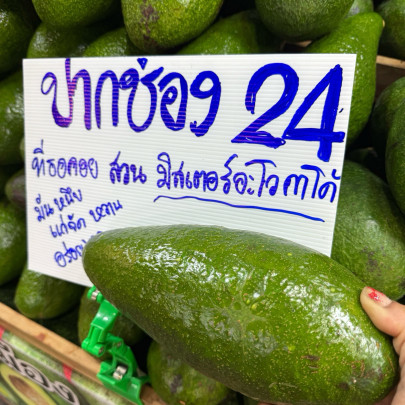 ปากช่อง 24
ที่รอคอย สวน มิสเตอร์อะโวคาโด้
มันหนึบ
แก่จัด หวาน
อร่อย